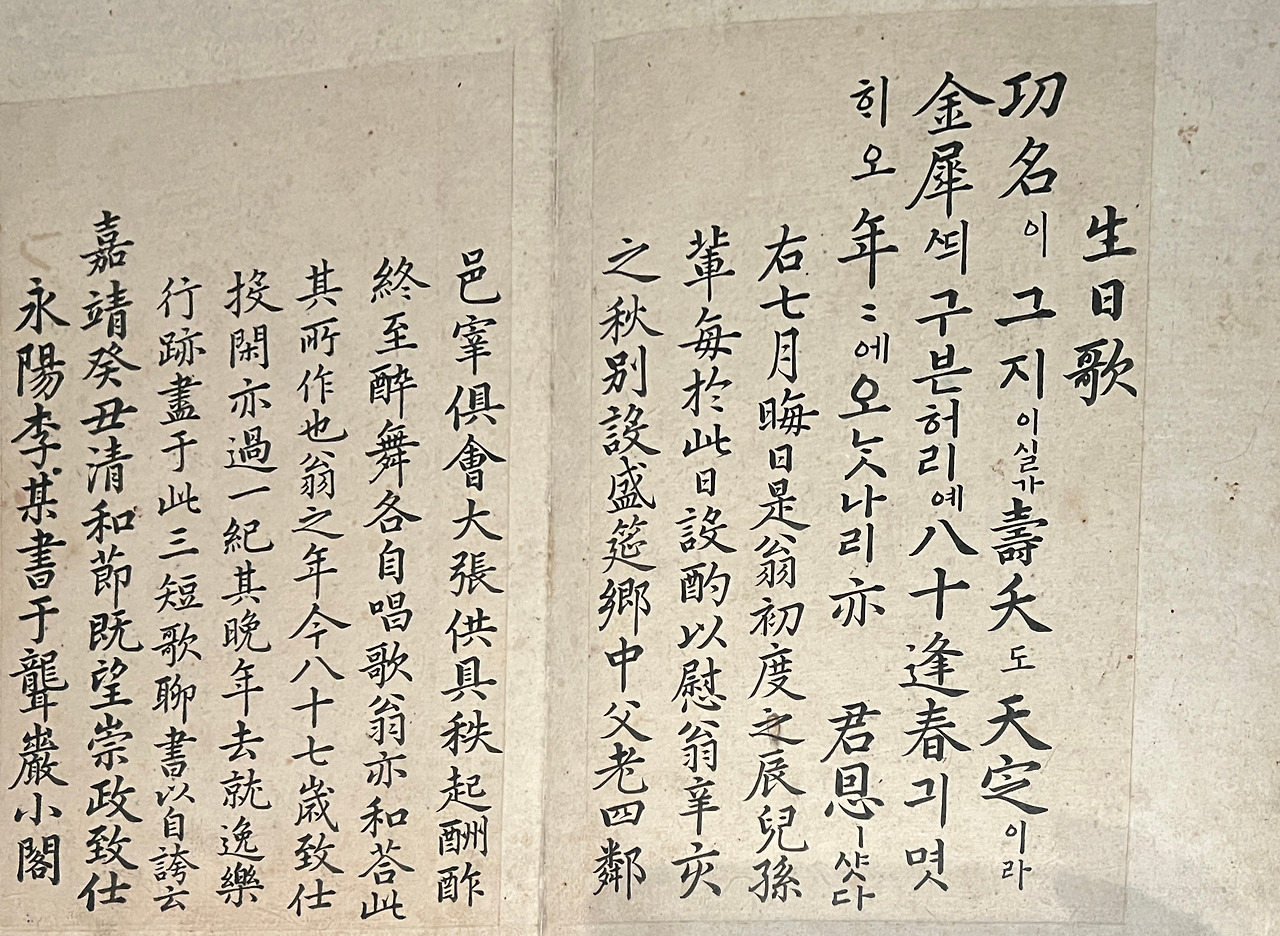 生日歌
功名이 그지이실가 壽夭도 天定이라
金犀띄 구븐허리예 八十逢春 긔몃
ᄒᆡ오 年〻에 오ᄂᆞᆺ나리 亦 君恩ㅣ샷다
右七月晦日是翁初度之辰兒孫
輩每於此日設酌以慰翁辛亥
之秋別設盛筵鄉中父老四鄰
邑宰俱會大張供具秩起酬酢
終至醉舞各自唱歌翁亦和答此
其所作也翁之年今八十七歲致仕
投閑亦過一紀其晚年去就逸樂
行跡盡于此三短歌聊書以自誇云
嘉靖癸丑清和節既望崇政致仕
永陽李某書于聾巖小閣